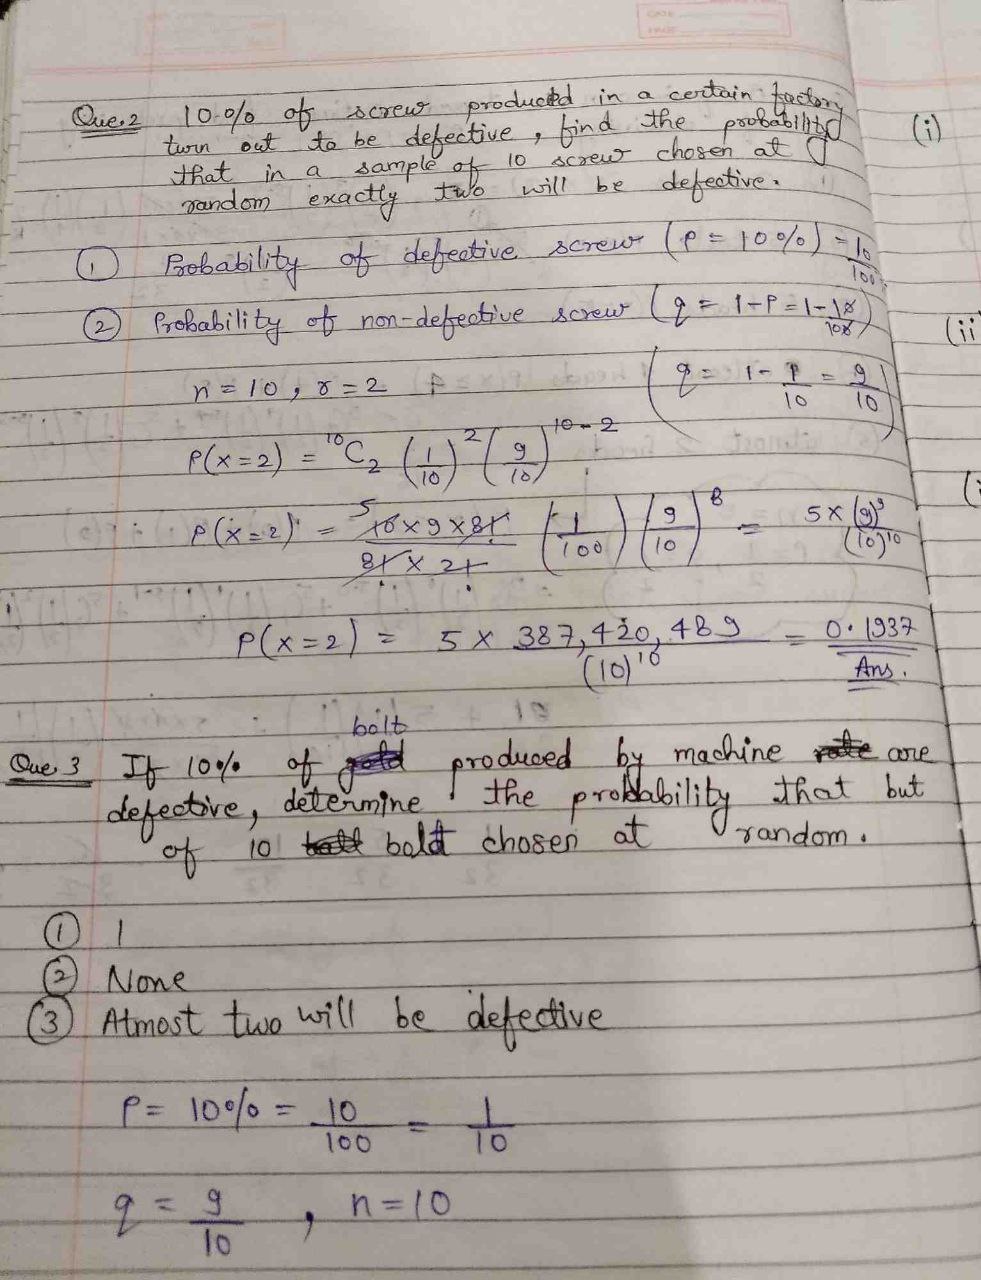 Que.2 10% of screw produced in a certain factory
turn out to be defective, find the probability
that in a sample of 10 screw chosen at
random exactly two will be defective.
① Probability of defective screw (P = 10%) = 10/100
② Probability of non-defective screw (q = 1-P = 1-10/100)
(q = 1 - 1/10 = 9/10)
n = 10, r = 2
P(x=2) = ¹⁰C₂ (1/10)² (9/10)¹⁰⁻²
P(x=2) = 5 10×9×8! / 8! × 2! (1/100) (9/10)⁸ = 5×(9)⁹/(10)¹⁰
P(x=2) = 5 × 387,420,489 / (10)¹⁰ = 0.1937
Ans.
bolt
Que. 3 If 10% of produced by machine are
defective, determine the probability that but
of 10 bolt chosen at random.
① 1
② None
③ Atmost two will be defective
P = 10% = 10/100 = 1/10
q = 9/10, n = 10
(i)
(ii
(i